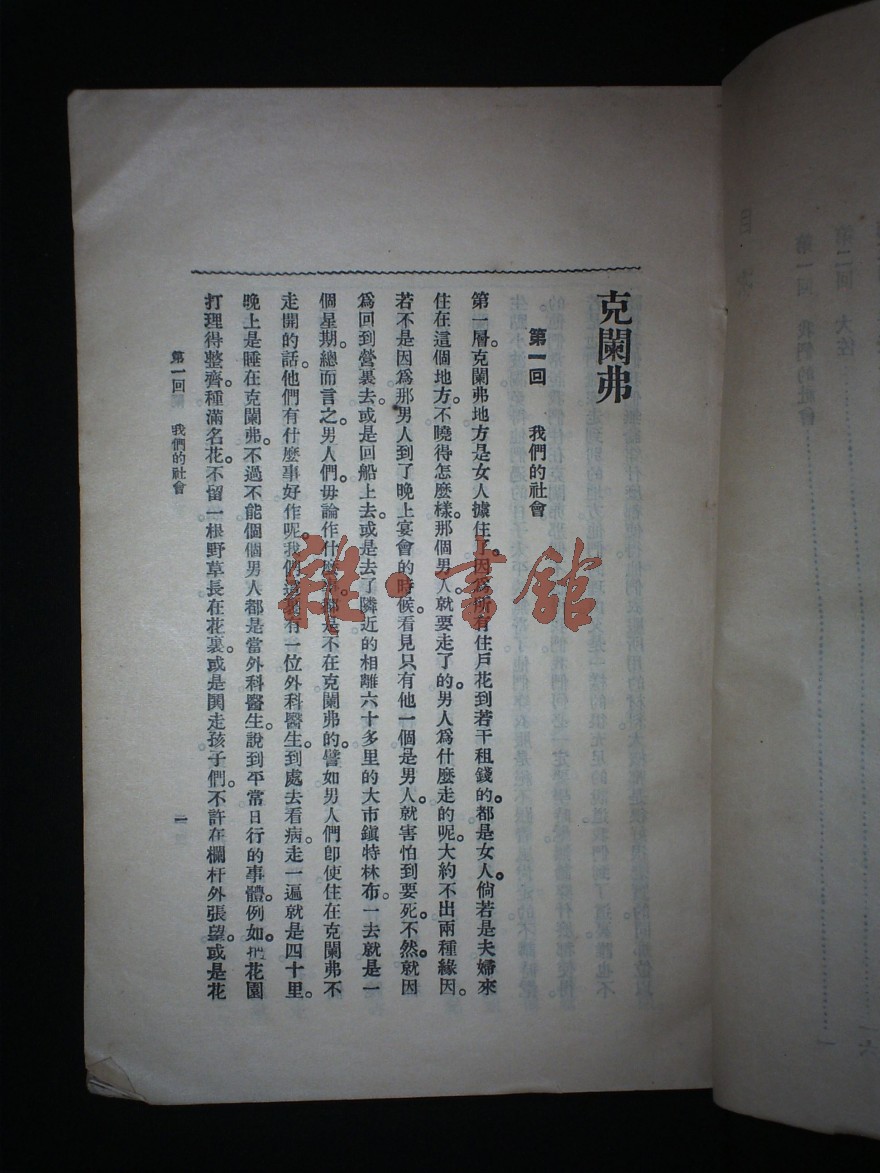 克闌弗
第一回　我們的社會
第一層克闌弗地方是女人據住了。因爲所有住戶花到若干租錢的。都是女人。倘若是夫婦來
住在這個地方。不曉得怎麼樣。那個男人就要走了的。男人爲什麼走的呢。大約不出兩種緣因。
若不是因爲那男人到了晚上宴會的時候。看見只有他一個是男人。就害怕到要死。不然就因
爲回到營裏去。或是回船上去。或是去了隣近的相離六十多里的大市鎮特林布。一去就是一
個星期。總而言之。男人們。毋論作什麼事都是不在克闌弗的。譬如男人們卽使住在克闌弗不
走開的話。他們有什麼事好作呢。我們這裏有一位外科醫生。到處去看病。走一遍就是四十里。
晚上是睡在克闌弗。不過不能個個男人都是當外科醫生。說到平常日行的事體。例如把花園
打理得整齊。種滿名花。不留一根野草長在花裏。或是関走孩子們。不許在欄杆外張望。或是花
第一回　我們的社會
一
雜·書館
第二回　大佐
第一回　我們的社會